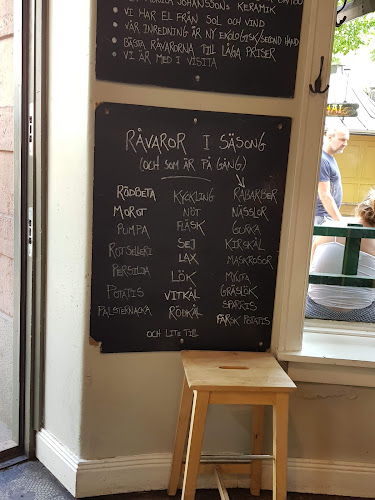 JOHANSSONS KERAMIK
• VI HAR EL FRÅN SOL OCH VIND
• VÅR INREDNING ÄR NY EKOLOGISK/SECOND HAND
• BÄSTA RÅVARORNA TILL LÅGA PRISER
• VI ÄR MED I VISITA
RÅVAROR I SÄSONG
(OCH SOM ÄR PÅ GÅNG)
RÖDBETA KYCKLING RABARBER
MOROT NÖT NÄSSLOR
PUMPA FLÄSK GURKA
ROTSELLERI SEJ KIRSKÅL
PERSILJA LAX MASKROSOR
LÖK MYNTA
POTATIS VITKÅL GRÄSLÖK
PALSTERNACKA RÖDKÅL SPARRIS
FÄRSK POTATIS
OCH LITE TILL